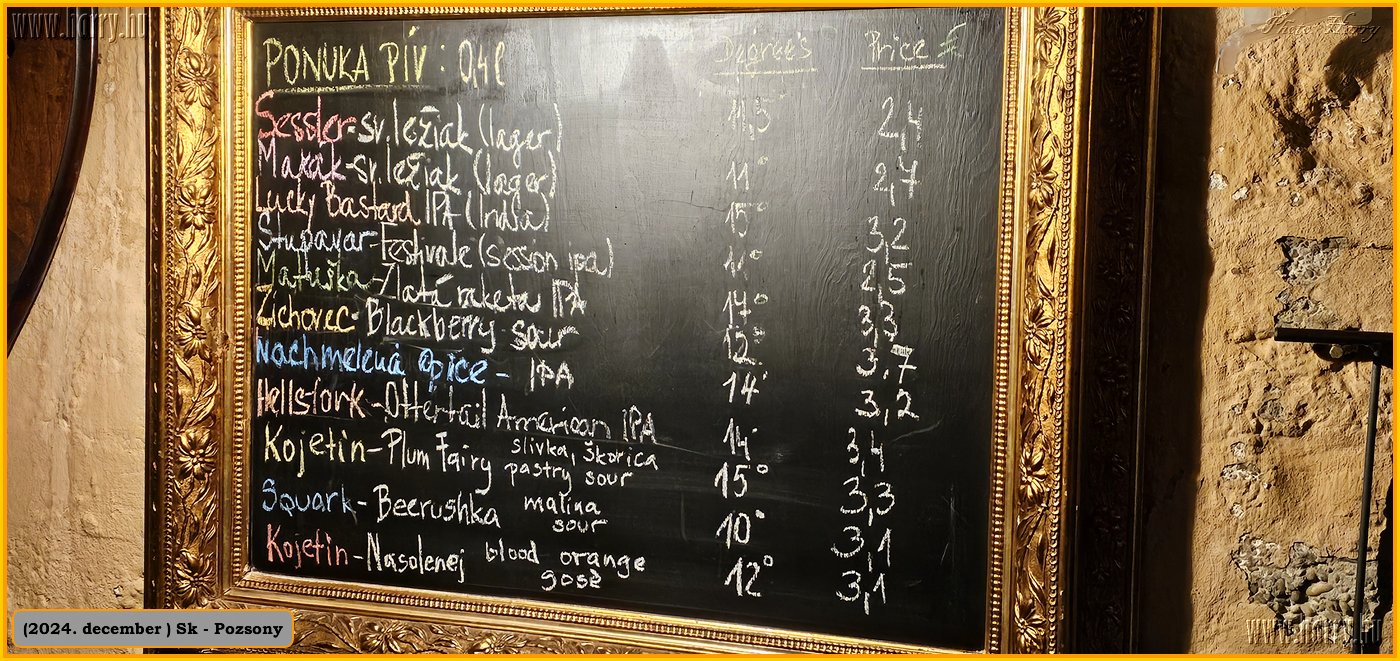 www.harry.hu
Photo: Harry
PONUKA PÍV : 0,4l Degree's Price €
Sessler-sv.ležiak (lager) 11,5° 2,4
Masák-sv.ležiak (lager) 11° 2,7
Lucky Bastard IPA (India) 15° 3,2
Stupavar-Festivale (session ipa) 11° 2,5
Matuška-Zlatá raketa IPA 17° 3,3
Zichovec-Blackberry sour 12° 3,7
Nachmelená Opice - IPA 14° 3,2
Hellstork-Ottertail American IPA 14° 3,4
Kojetín-Plum Fairy slivka, škorica 15° 3,3
pastry sour
Squark-Beerushka malina 10° 3,1
sour
Kojetín-Nasolenej blood orange 12° 3,1
gosè
(2024. december ) Sk - Pozsony
www.harry.hu